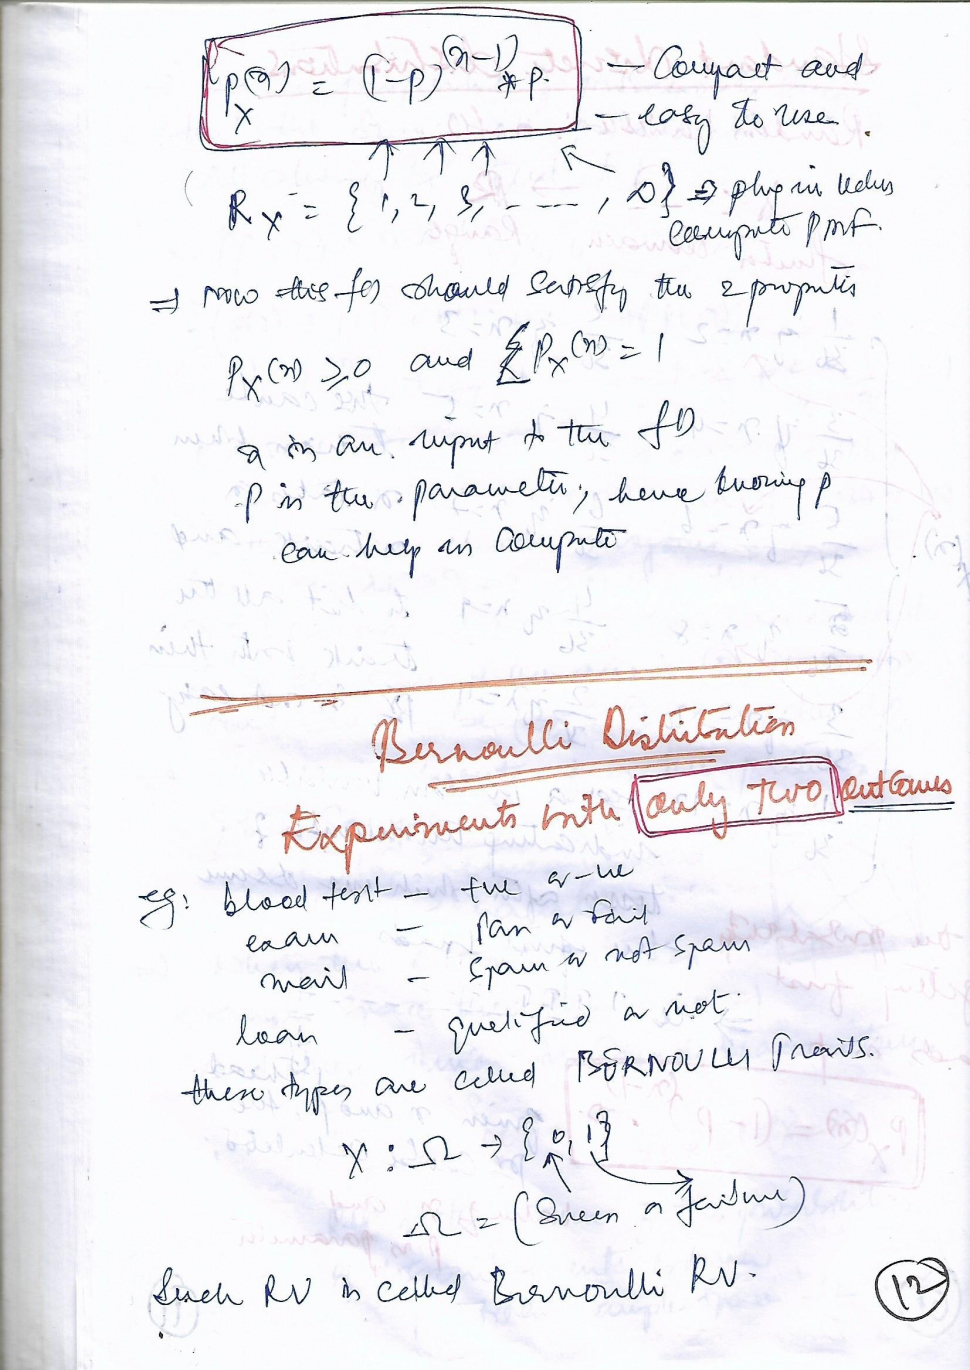 P_X(x) = (1-p)^(x-1) * p. — Compact and
— easy to use.
R_X = { 1, 2, 3, - - - - , ∞} ⇒ plug in values
compute PMF.
⇒ Now this fn should satisfy the 2 properties
P_X(x) ≥ 0 and Σ P_X(x) = 1
x is an input to the fn
p is the parameter, hence knowing p
can help us compute
Bernoulli Distribution
Experiments with only two outcomes
eg: blood test — +ve or -ve
exam — Pass or fail
mail — spam or not spam
loan — qualified or not.
these types are called BERNOULLI Trails.
X : Ω → {0, 1}
Ω = (Success or failure)
Such RV is called Bernoulli RV.
12